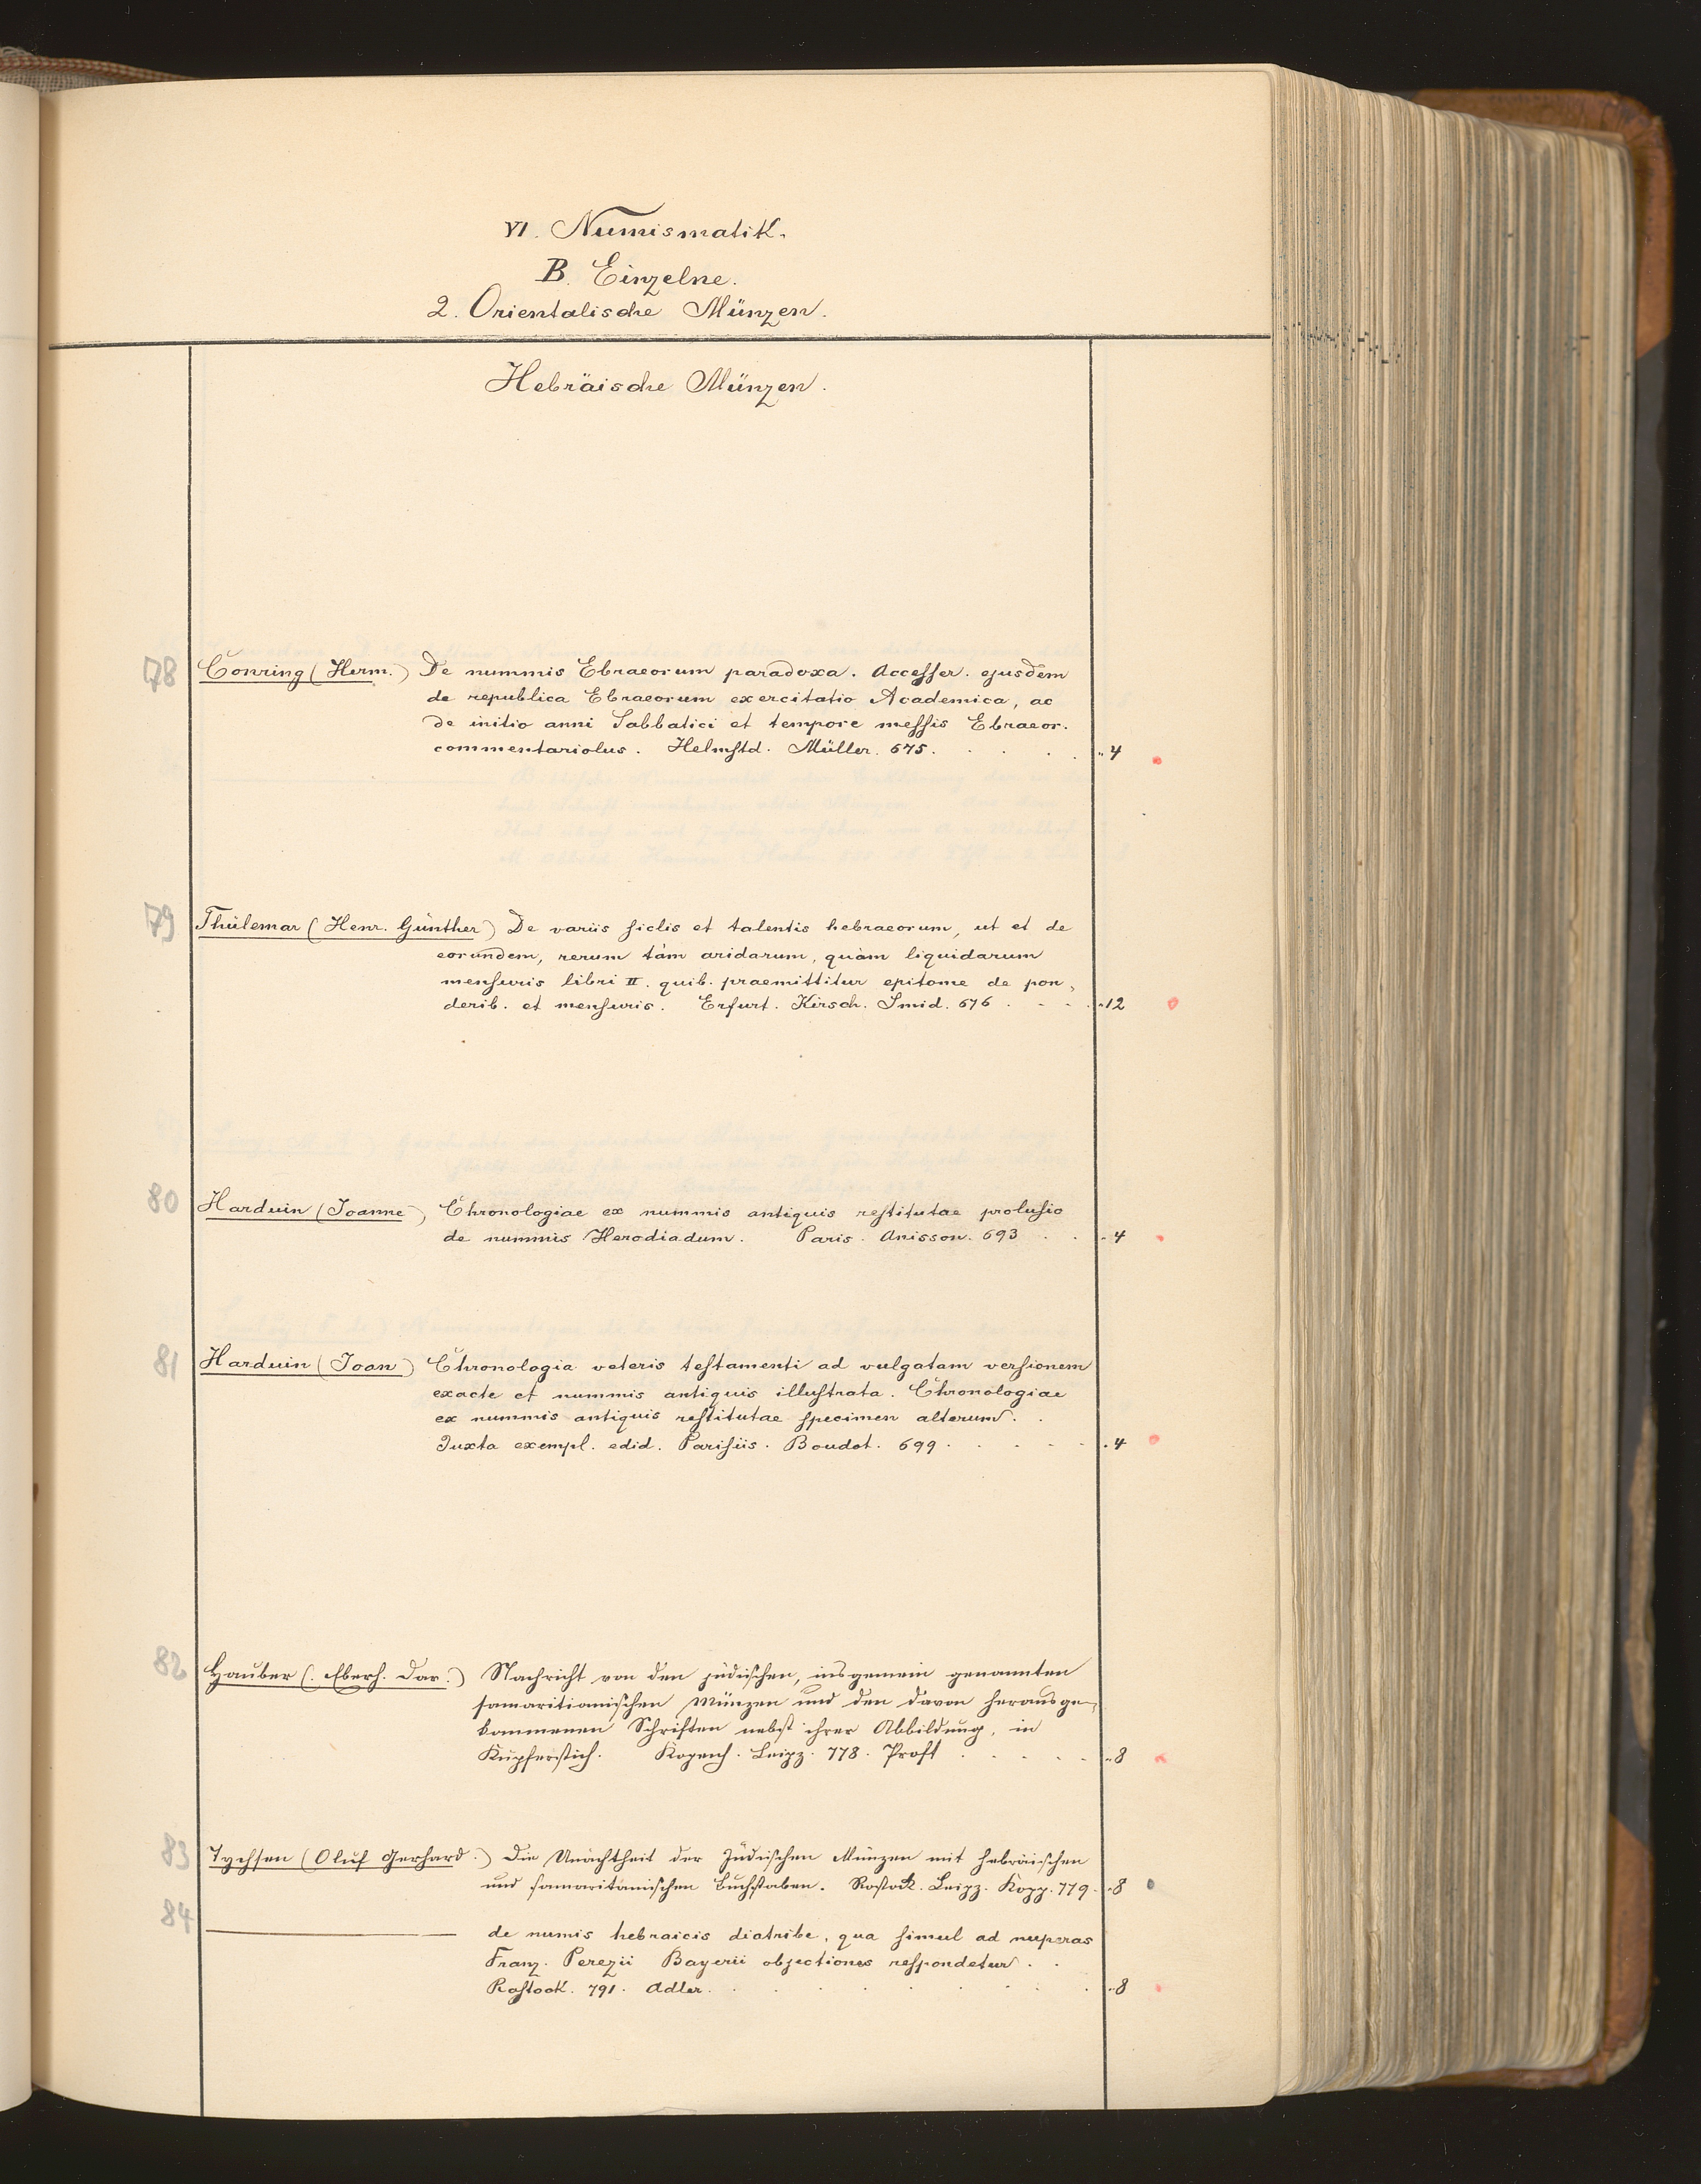 VI. Numismatik.
B. Einzelne.
2. Orientalische Münzen.
Hebräische Münzen.
78 Conring (Herm.) De nummis Ebraeorum paradoxa. Accesser. ejusdem
de republica Ebraeorum exercitatio Academica, ac
de initio anni Sabbatici et tempore messis Ebraeor.
commentariolus. Helmstd. Müller. 675. . . . . „ 4
79 Thülemar (Henr. Günther) De variis siclis et talentis hebraeorum, ut et de
eorundem, rerum tàm aridarum, quàm liquidarum
mensuris libri II. quib. praemittitur epitome de pon-
derib. et mensuris. Erfurt. Kirsch. Smid. 676 . - - . „ 12
80 Harduin (Joanne) Chronologiae ex nummis antiquis restitutae prolusio
de nummis Herodiadum. Paris. Anisson. 693 . . . „ 4
81 Harduin (Joan) Chronologia veteris testamenti ad vulgatam versionem
exacte et nummis antiquis illustrata. Chronologiae
ex nummis antiquis restitutae specimen alterum. .
Juxta exempl. edid. Parisiis. Boudot. 699 . . . . - . 4
82 Hauber (. Eberh. Dav.) Nachricht von den jüdischen, insgemein genannten
samaritianischen Münzen und den davon herausge-
kommenen Schriften nebst ihrer Abbildung, in
Kupferstich. Kopenh. Leipz. 778. Proft . . . . . „ 8
83 Tychsen (Oluf Gerhard.) Die Unächtheit der Jüdischen Münzen mit hebräischen
und samaritanischen Buchstaben. Rostock. Leipz. Kopp. 779. „ 8
84 ———— de numis hebraicis diatribe, qua simul ad nuperas
Franz. Perezii Bayerii objectiones respondetur . .
Rostock. 791. Adler. . . . . . . . „ 8